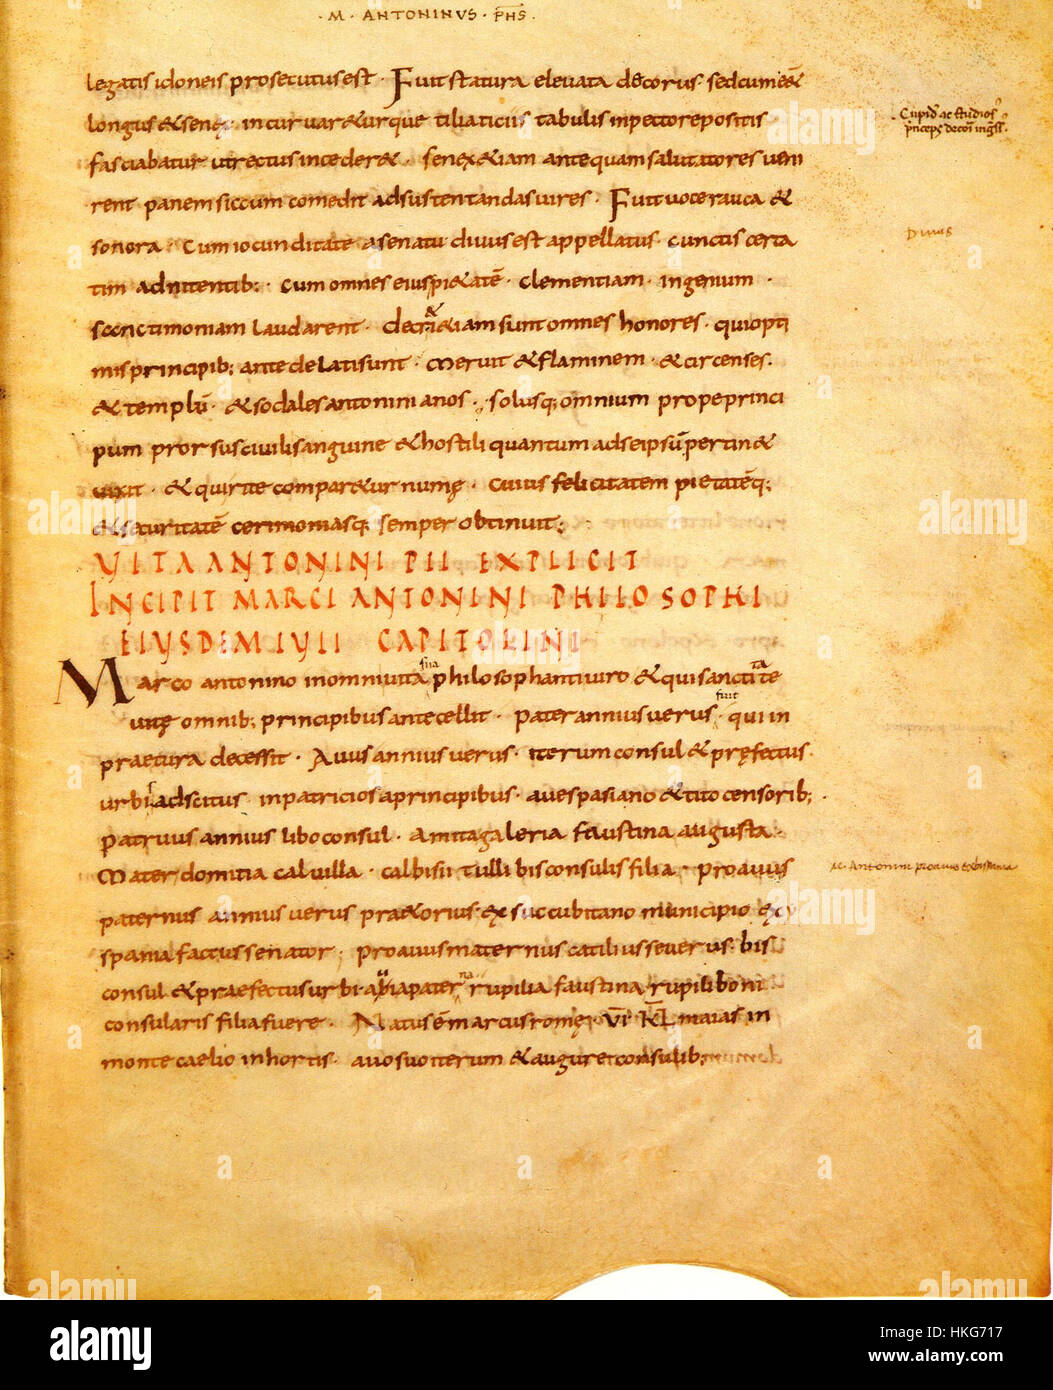 · M · ANTONINVS · PHS ·
legatis idoneis prosecutus est · Fuit statura elevata decorus · sed cum e&
longus & senex incurvar&urque tiliaciis tabulis inpectore positis
fasciabatur ut rectus inceder& · senex &iam antequam salutatores veni
rent panem siccum comedit ad sustentandas vires · Fuit voce rauca &
sonora · Cum iocunditate asenatu divus est appellatus · cunctis certa
tim adnitentib: · cum omnes eius pi&atē · clementiam · ingenium ·
sanctimoniam laudarent · decr&a &iam sunt omnes honores · qui opti
mis principib; ante delati sunt · Meruit & flaminem · & circenses ·
& templū · & sodales antoninianos · solusq; omnium prope princi
pum prorsus civili sanguine & hostili quantum ad se ipsū pertin&
vixit · & qui rite compar&ur numę · cuius felicitatem pietatēq;
& securitatē cerimoniasq; semper obtinuit;
VITA ANTONINI PII EXPLICIT
INCIPIT MARCI ANTONINI PHILOSOPHI
EIUSDEM IULII CAPITOLINI
Marco antonino in omni vita sua philosophanti viro & qui sanctitate
vitę omnib; principibus antecellit · pater annius verus fuit · qui in
praetura decessit · Avus annius verus · iterum consul & pręfectus
urbi adscitus in patricios a principibus · avespasiano & tito censorib; ·
Patruus annius libo consul · Amita galeria faustina augusta ·
Mater domitia calvilla · calbisii tulli bis consulis filia · proavus
paternus annius verus pra&orius · ex succubitano municipio ex
spania factus senator · proavus maternus catilius severus · bis
consul & praefectus urbi · avia paterna rupilia faustina rupili boni
consularis filia fuere · Natus ē marcus romę · VI · KL maias in
monte caelio in hortis · avo suo iterum & augure consulib;
Divus
M · Antonini proavus ex hispania
alamy
HKG717
www.alamy.com